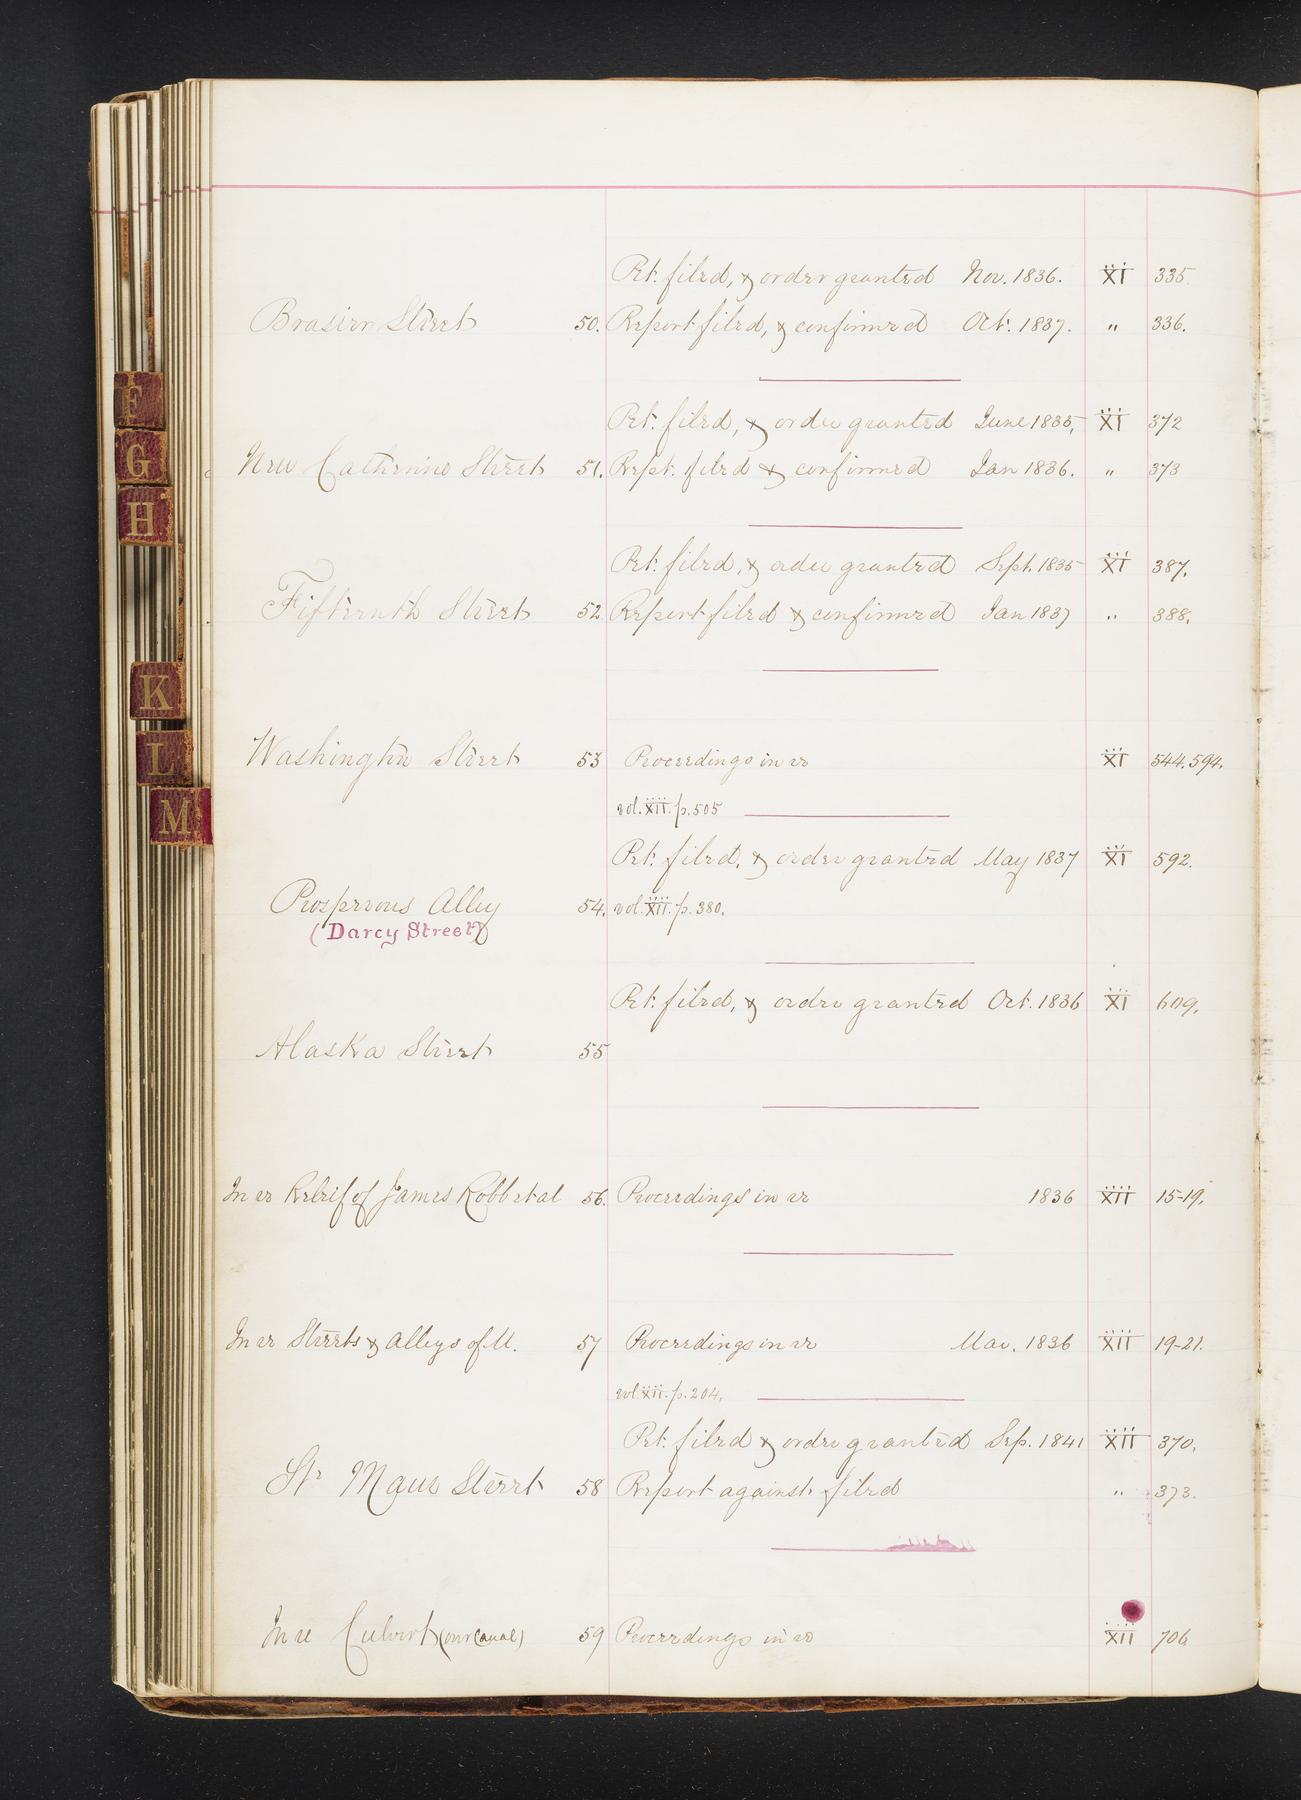 Pet. filed, & order granted Nov. 1836. XI 335.
Brasier Street 50. Report filed, & confirmed Oct. 1837. " 336.
Pet. filed, & order granted June 1835, XI 372
New Catherine Street 51. Rept. filed & confirmed Jan 1836. " 373
F
G
H
Pet. filed, & order granted Sept. 1835 XI 387.
Fifteenth Street 52 Report filed & confirmed Jan 1837 " 388.
K
L
M
Washington Street 53 Proceedings in re XI 544.594.
vol. XII. p. 505
Pet. filed, & order granted May 1837 XI 592.
Prosperous Alley 54. vol. XII. p. 380.
(Darcy Street)
Pet. filed, & order granted Oct. 1836 XI 609.
Alaska Street 55
In re Relief of James Robb et al 56. Proceedings in re 1836 XII 15-19.
In re Streets & Alleys of M. 57 Proceedings in re Mar. 1836 XII 19-21.
vol. XII. p. 204.
Pet. filed & order granted Sep. 1841 XII 370.
St Maur Street 58 Report against filed " 373.
In re Culvert (over Canal) 59 Proceedings in re XII 706